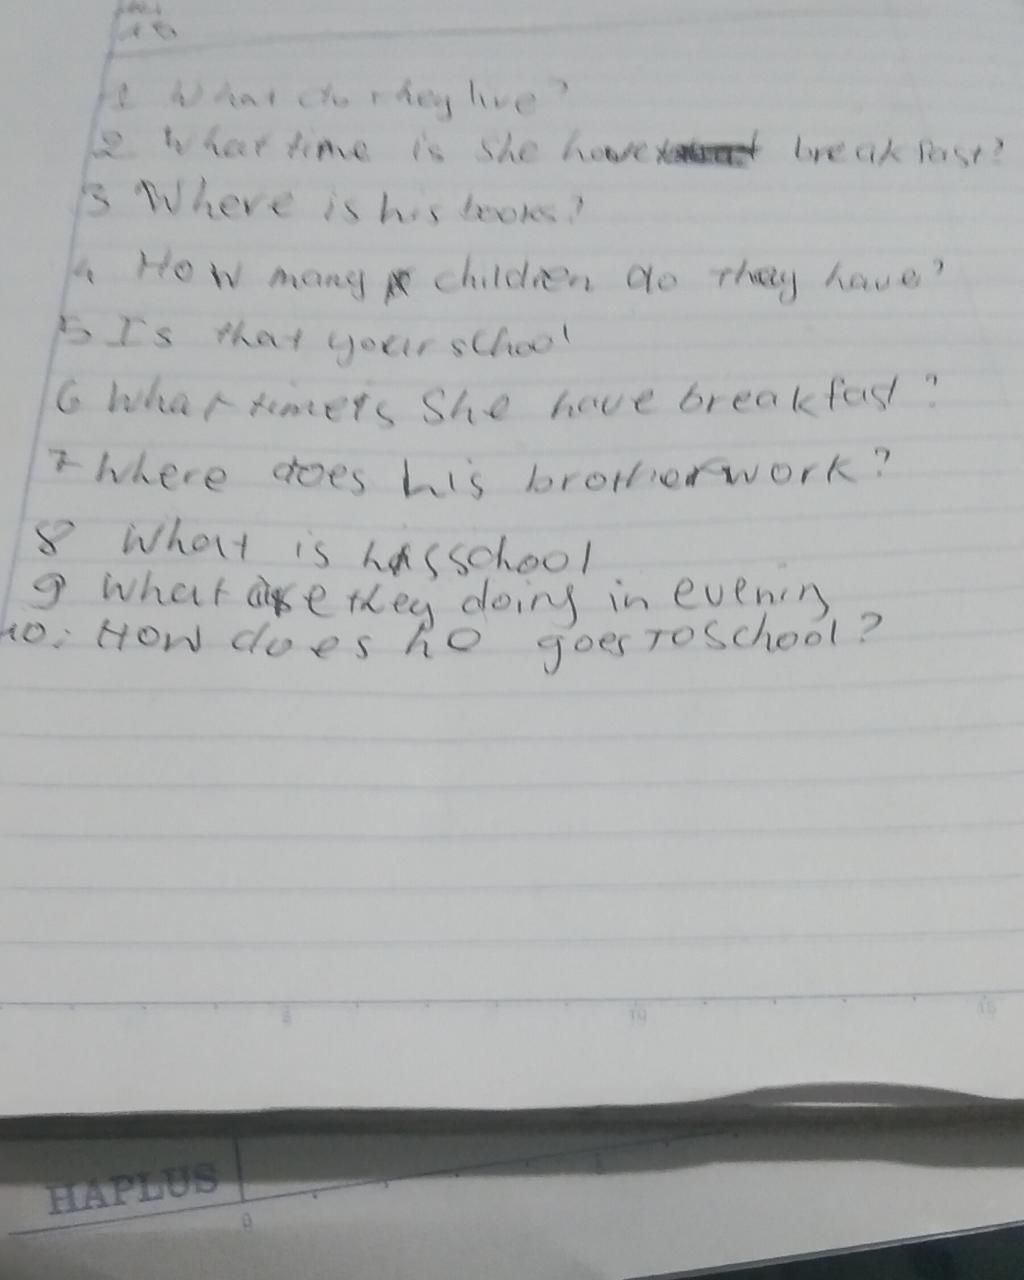 10
1 What do they live?
2 What time is she have breakfast?
3 Where is his books?
4 How many children do they have?
5 Is that your school
6 What timeis She have breakfast?
7 Where does his brother work?
8 What is his school
9 What are they doing in evening
10: How does he goes TO School?
5 10 15
HAPLUS
0